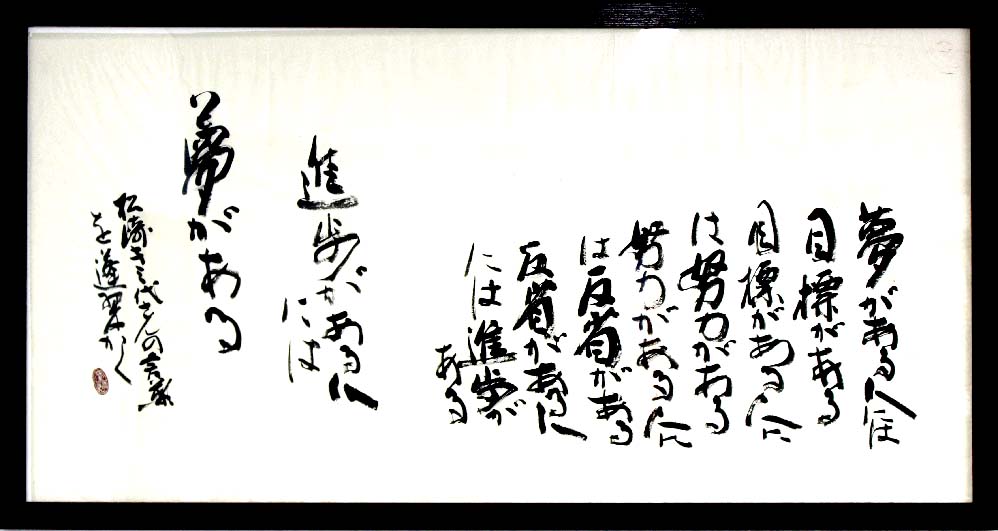 夢がある人には
目標がある
目標がある人に
は努力がある
努力がある人に
は反省がある
反省がある人
には進歩が
ある
進歩がある人
には
夢がある
さんの言葉
を蓬翠かく